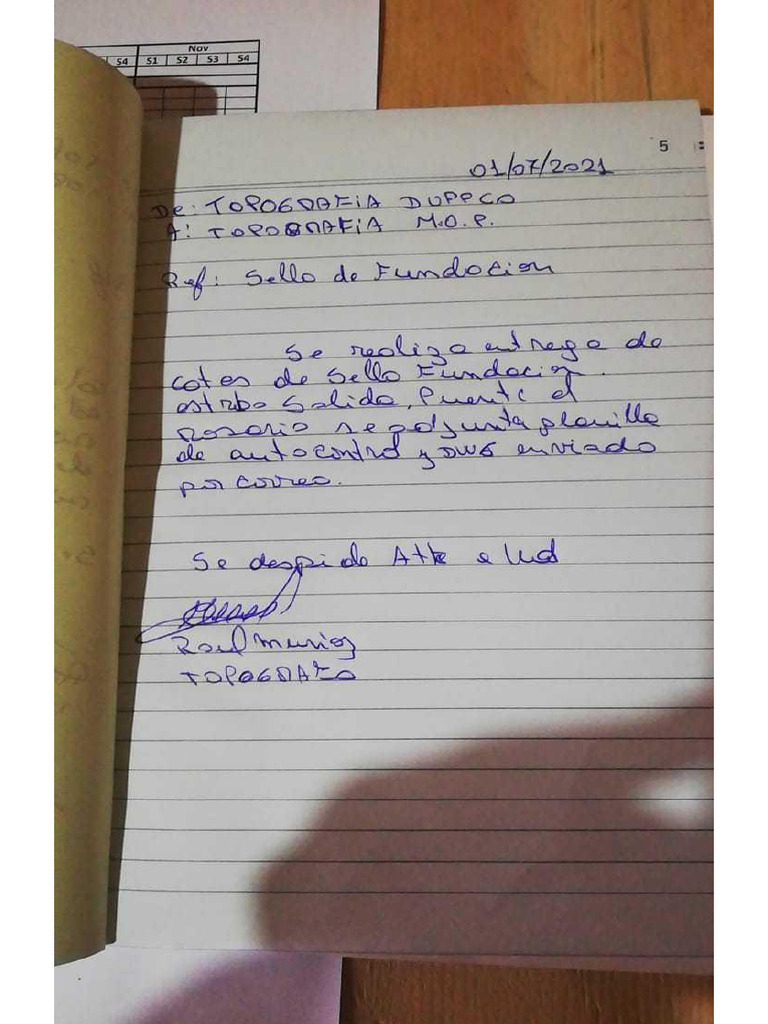 Nov
S4 S1 S2 S3 S4
5
01/07/2021
De: TOPOGRAFIA DUPPCO
A: TOPOGRAFIA M.O.P.
Ref: Sello de Fundacion
Se realiza entrega de
cotas de Sello Fundacion.
estribo Salida, Puente el
Rosario se adjunta planilla
de autocontrol y DWG enviado
por correo.
Se despide Atte a Ud
Raul Muñoz
TOPOGRAFO